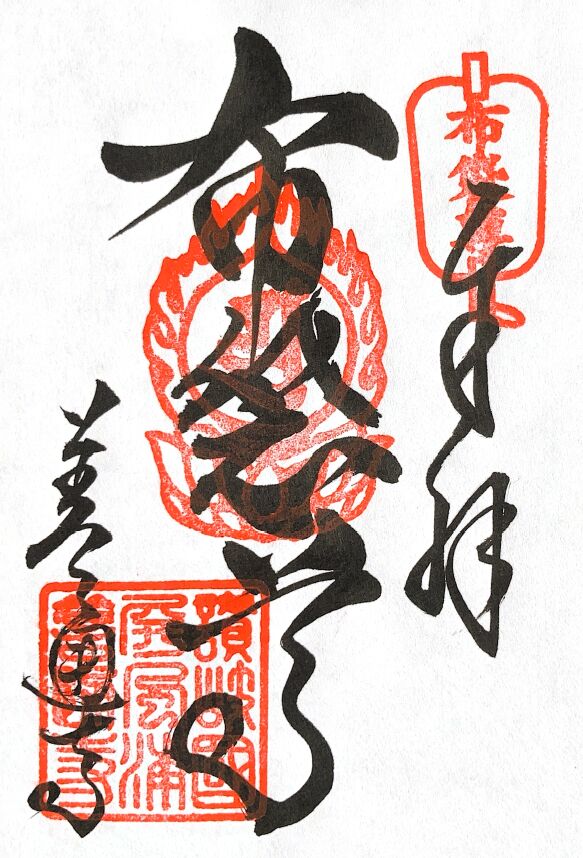 奉拝
布袋尊
布袋尊
讃岐國
屏風浦
善通寺
善通寺